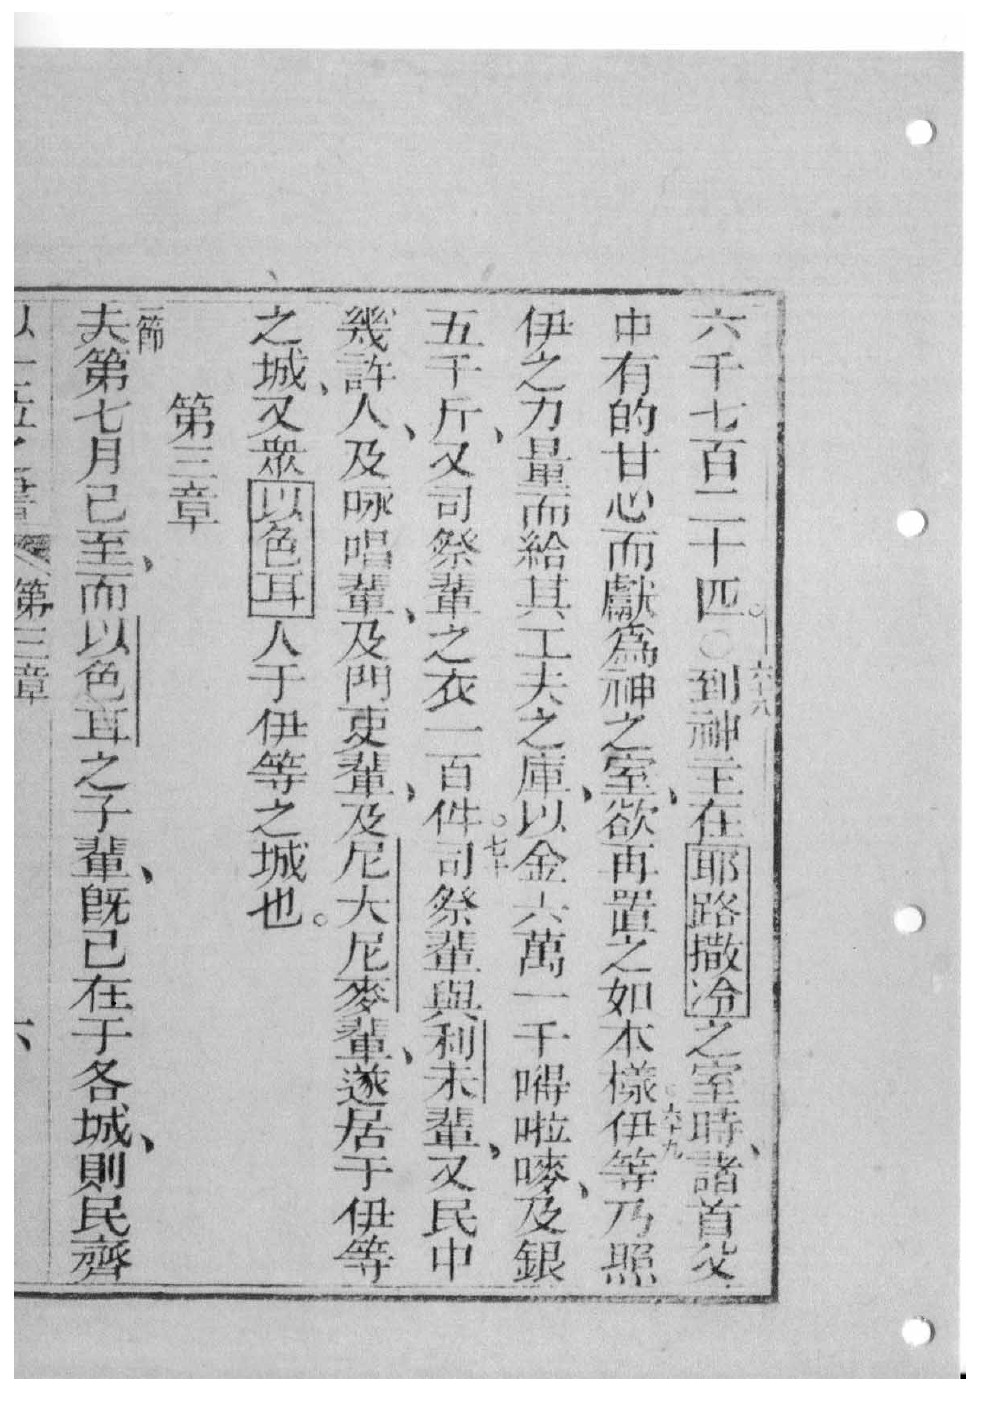 六千七百二十匹。○六十八到神主在耶路撒冷之室時、諸首父
中有的甘心而獻爲神之室、欲再置之如本樣。六十九伊等乃照
伊之力量而給其工夫之庫、以金六萬一千嘚啦嘜、及銀
五千斤、又司祭輩之衣一百件。七十司祭輩與利未輩、又民中
幾許人、及咏唱輩、及門吏輩、及尼大尼麥輩、遂居于伊等
之城、又衆以色耳人于伊等之城也。
第三章
一節夫第七月已至、而以色耳之子輩、旣已在于各城、則民齊
第三章
六